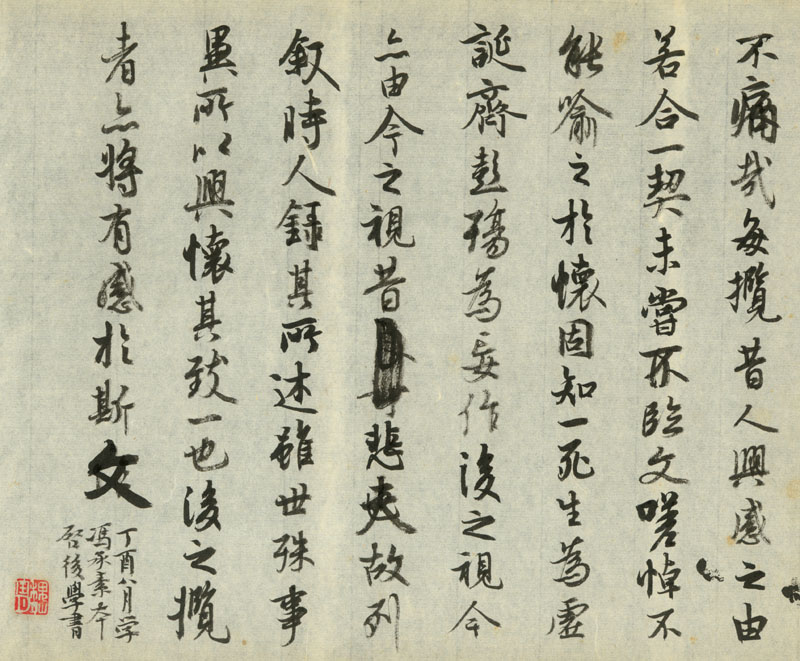 不痛哉每攬昔人興感之由
若合一契未嘗不臨文嗟悼不
能喻之於懷固知一死生為虛
誕齊彭殤為妄作後之視今
亦由今之視昔悲夫故列
叙時人錄其所述雖世殊事
異所以興懷其致一也後之攬
者亦將有感於斯文
丁酉八月学
馮承素本
啓後學書